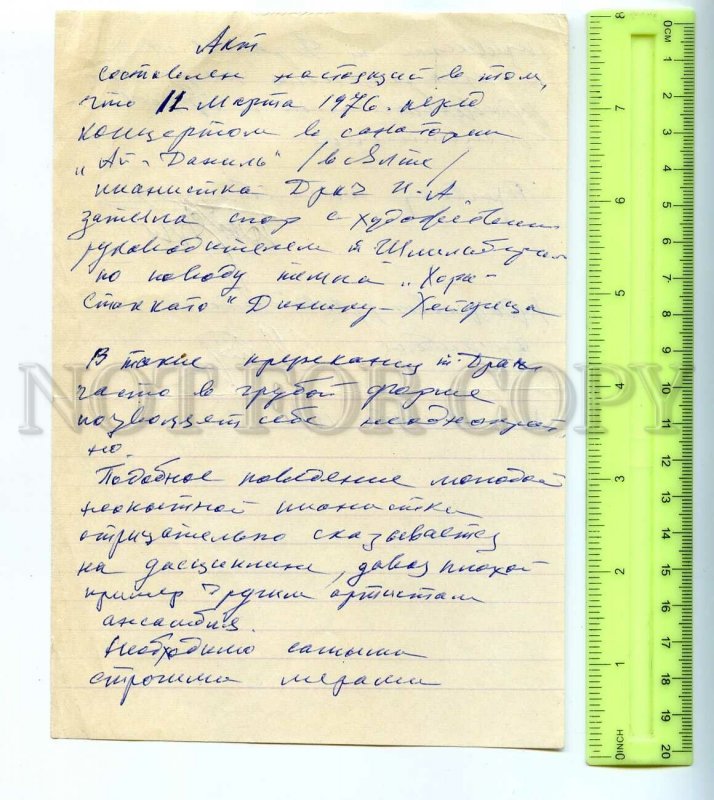 Акт
составлен настоящий в том,
что 11 Марта 1976. перед
концертом в санатории
"Ай-Даниль" /в Ялте/
пианистка Драч И.А
затеяла спор с художественным
руководителем т
по поводу темпа "Хора-
Стаккато" Динику-Хейфеца
В такие пререкания т. Драч
часто в грубой форме
позволяет себе неоднократ
но.
Подобное поведение молодой
пианистки
отрицательно сказывается
на дисциплине, давая плохой
пример другим артистам
ансамбля.
Необходимо самыми
строгими мерами
NOT FOR COPY
8 7 6 5 4 3 2 1 0 INCH
0 CM 1 2 3 4 5 6 7 8 9 10 11 12 13 14 15 16 17 18 19 20